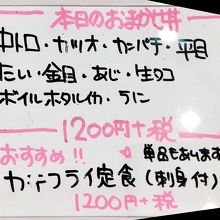 本日のおまかせ丼
中トロ・カツオ・カンパチ・平目
たい・金目・あじ・生タコ
ボイルホタルイカ・うに
1200円+税
おすすめ!! 単品もあります
カキフライ定食(刺身付)
1200円+税